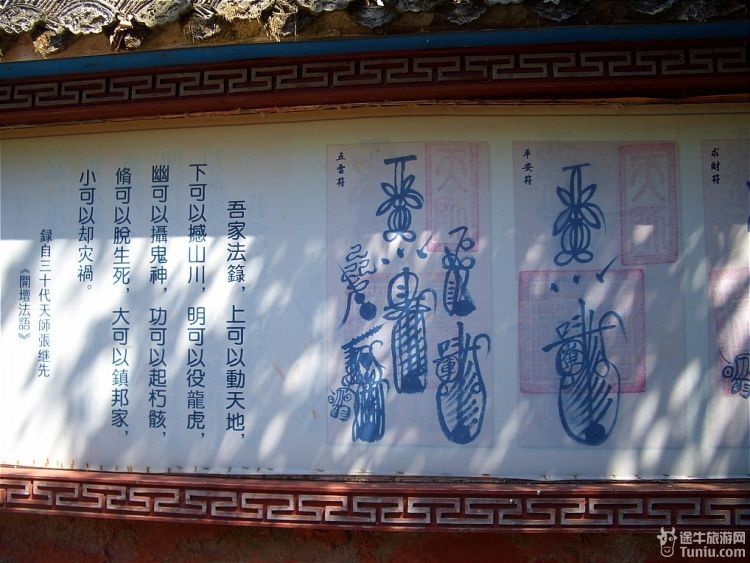 求財符
平安符
五雷符
吾家法籙，上可以動天地，
下可以撼山川，明可以役龍虎，
幽可以攝鬼神，功可以起朽骸，
脩可以脫生死，大可以鎮邦家，
小可以却灾禍。
録自三十代天師張继先
《開壇法語》
途牛旅游网
Tuniu.com